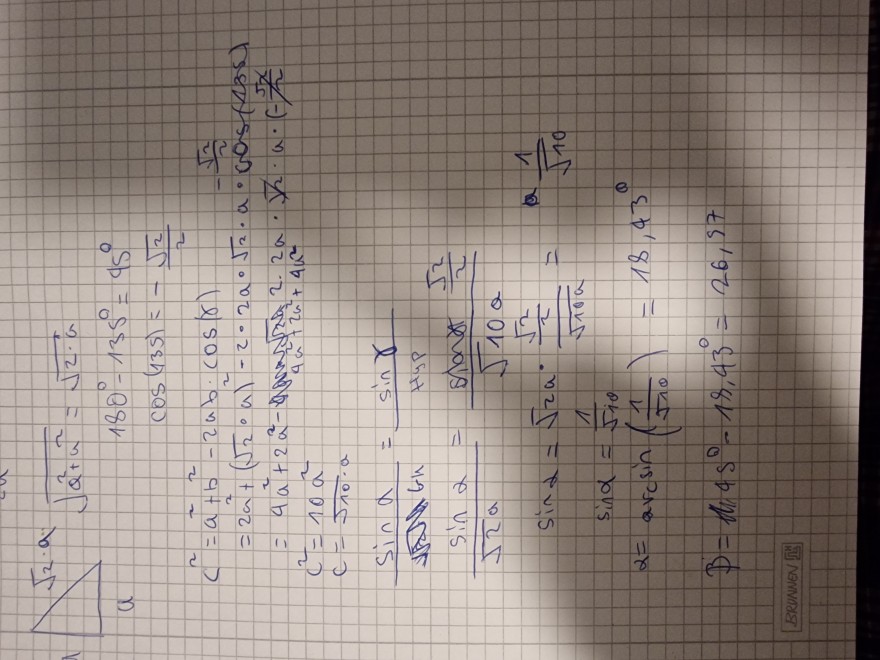 √2·a
a
√a²+a² = √2·a
180°-135° = 45°
cos(135) = -√2/2
c² = a²+b²-2ab·cos(γ)
-√2/2
= 2a²+(√2·a)²-2·2a·√2·a·cos(135)
= 4a²+2a²- 2·2a·√2·a·(-√2/2)
4a²+2a²+4a²
c² = 10a²
c = √10·a
sin α = sin γ
Hyp
sin α / √2a = √2/2 / √10a
sin α = √2a · √2/2 / √10a = 1/√10
sin α = 1/√10
α = arcsin(1/√10) = 18,43°
β = 45°-18,43° = 26,57
BRUNNEN